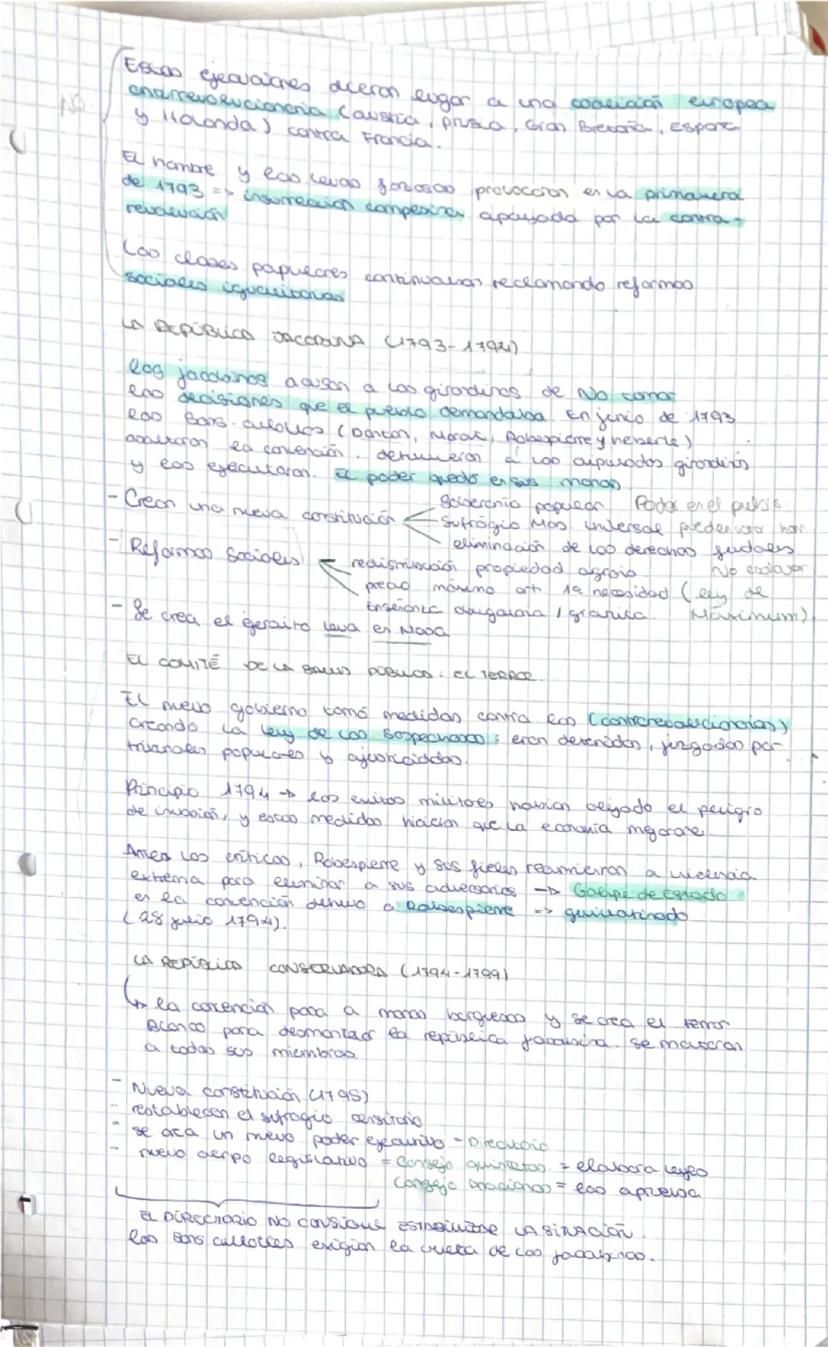 Estas ejecuciones dieron lugar a una coalición europea
contrarrevolucionaria (Austria, Prusia, Gran Bretaña, España
NO
y Holanda) contra Francia.
El hambre y las levas forzosas provocaron en la primavera
de 1793 => insurrección campesina apoyada por la contra-
revolución
Las clases populares continuaban reclamando reformas
sociales igualitarias
LA REPÚBLICA JACOBINA (1793-1794)
Los jacobinos acusan a los girondinos de No tomar
las decisiones que el pueblo demandaba. En junio de 1793
los sans-culottes (Danton, Marat, Robespierre y heberte)
la convención, detuvieron a los diputados girondinos
y los ejecutaron. El poder quedó en sus manos
- Crean una nueva constitución
Soberanía popular Poder en el pueblo.
Sufragio Mas. universal pueden
eliminación de los derechos feudales
- Reformas Sociales
redistribución propiedad agraria No
precio máximo art. 1ª necesidad (Ley de
Enseñanza obligatoria / gratuita. Maximum)
- Se crea el ejército leva en Masa
EL COMITÉ DE LA SALUD PÚBLICA: EL TERROR.
El nuevo gobierno tomó medidas contra los (contrarevolucionarios)
creando la Ley de los Sospechosos: eran detenidos, juzgados por
tribunales populares y ajusticiados.
Principio 1794 -> los exitos militares habian alejado el peligro
de invasión, y estas medidas hicieron que la economía mejorara
Antes los críticos, Robespierre y sus fieles reamieron a violencia
extrema para eliminar a sus adversarios -> Golpe de Estado
en la convención detuvo a Robespierre -> guillotinado
(28 julio 1794).
LA REPÚBLICA CONSERVADORA (1794-1799)
-> La convención pasa a manos burguesas y se crea el terror
Blanco para desmontar la república jacobina. se mascran
a todos sus miembros
- Nueva constitución (1795)
- restablecen el sufragio censitario
- se crea un nuevo poder ejecutivo - Directorio
- nuevo cuerpo legislativo = Consejo quinientos = elabora leyes
Consejo ancianos = las aprueba
EL DIRECTORIO NO CONSIGUE ESTABILIZAR LA SITUACIÓN.
Los sans culottes exigían la vuelta de los jacobinos.